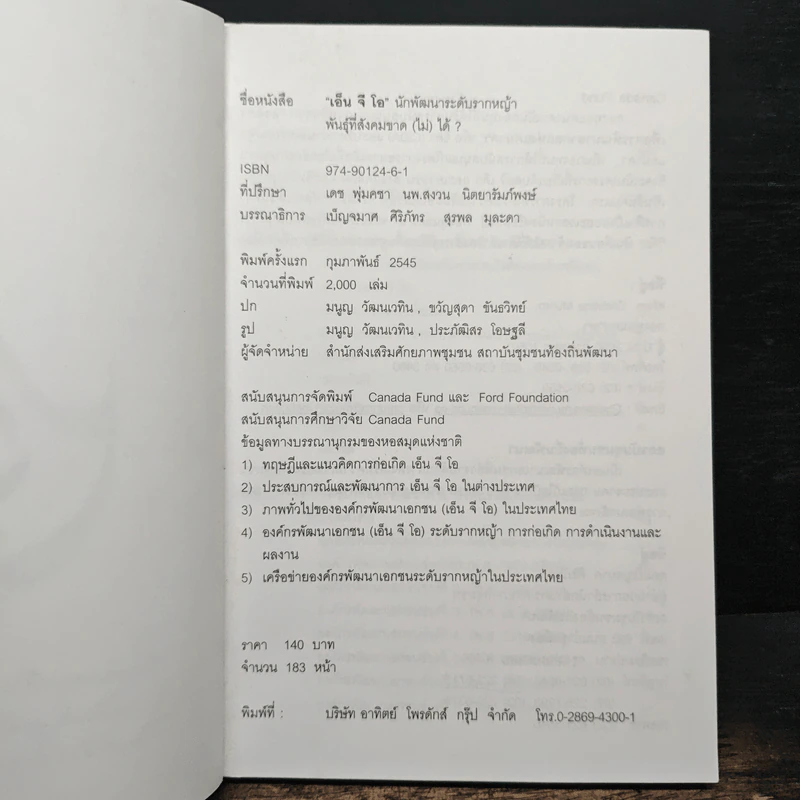 ชื่อหนังสือ "เอ็น จี โอ" นักพัฒนาระดับรากหญ้า
พันธุ์ที่สังคมขาด (ไม่) ได้ ?
ISBN 974-90124-6-1
ที่ปรึกษา เดช พุ่มคชา นพ.สงวน นิตยารัมภ์พงษ์
บรรณาธิการ เบ็ญจมาศ ศิริภัทร สุรพล มุละดา
พิมพ์ครั้งแรก กุมภาพันธ์ 2545
จำนวนที่พิมพ์ 2,000 เล่ม
ปก มนูญ วัฒนเวทิน , ขวัญสุดา ขันธวิทย์
รูป มนูญ วัฒนเวทิน , ประภัฒิสร โอษฐลี
ผู้จัดจำหน่าย สำนักส่งเสริมศักยภาพชุมชน สถาบันชุมชนท้องถิ่นพัฒนา
สนับสนุนการจัดพิมพ์ Canada Fund และ Ford Foundation
สนับสนุนการศึกษาวิจัย Canada Fund
ข้อมูลทางบรรณานุกรมของหอสมุดแห่งชาติ
1) ทฤษฎีและแนวคิดการก่อเกิด เอ็น จี โอ
2) ประสบการณ์และพัฒนาการ เอ็น จี โอ ในต่างประเทศ
3) ภาพทั่วไปขององค์กรพัฒนาเอกชน (เอ็น จี โอ) ในประเทศไทย
4) องค์กรพัฒนาเอกชน (เอ็น จี โอ) ระดับรากหญ้า การก่อเกิด การดำเนินงานและ
ผลงาน
5) เครือข่ายองค์กรพัฒนาเอกชนระดับรากหญ้าในประเทศไทย
ราคา 140 บาท
จำนวน 183 หน้า
พิมพ์ที่ : บริษัท อาทิตย์ โพรดักส์ กรุ๊ป จำกัด โทร.0-2869-4300-1